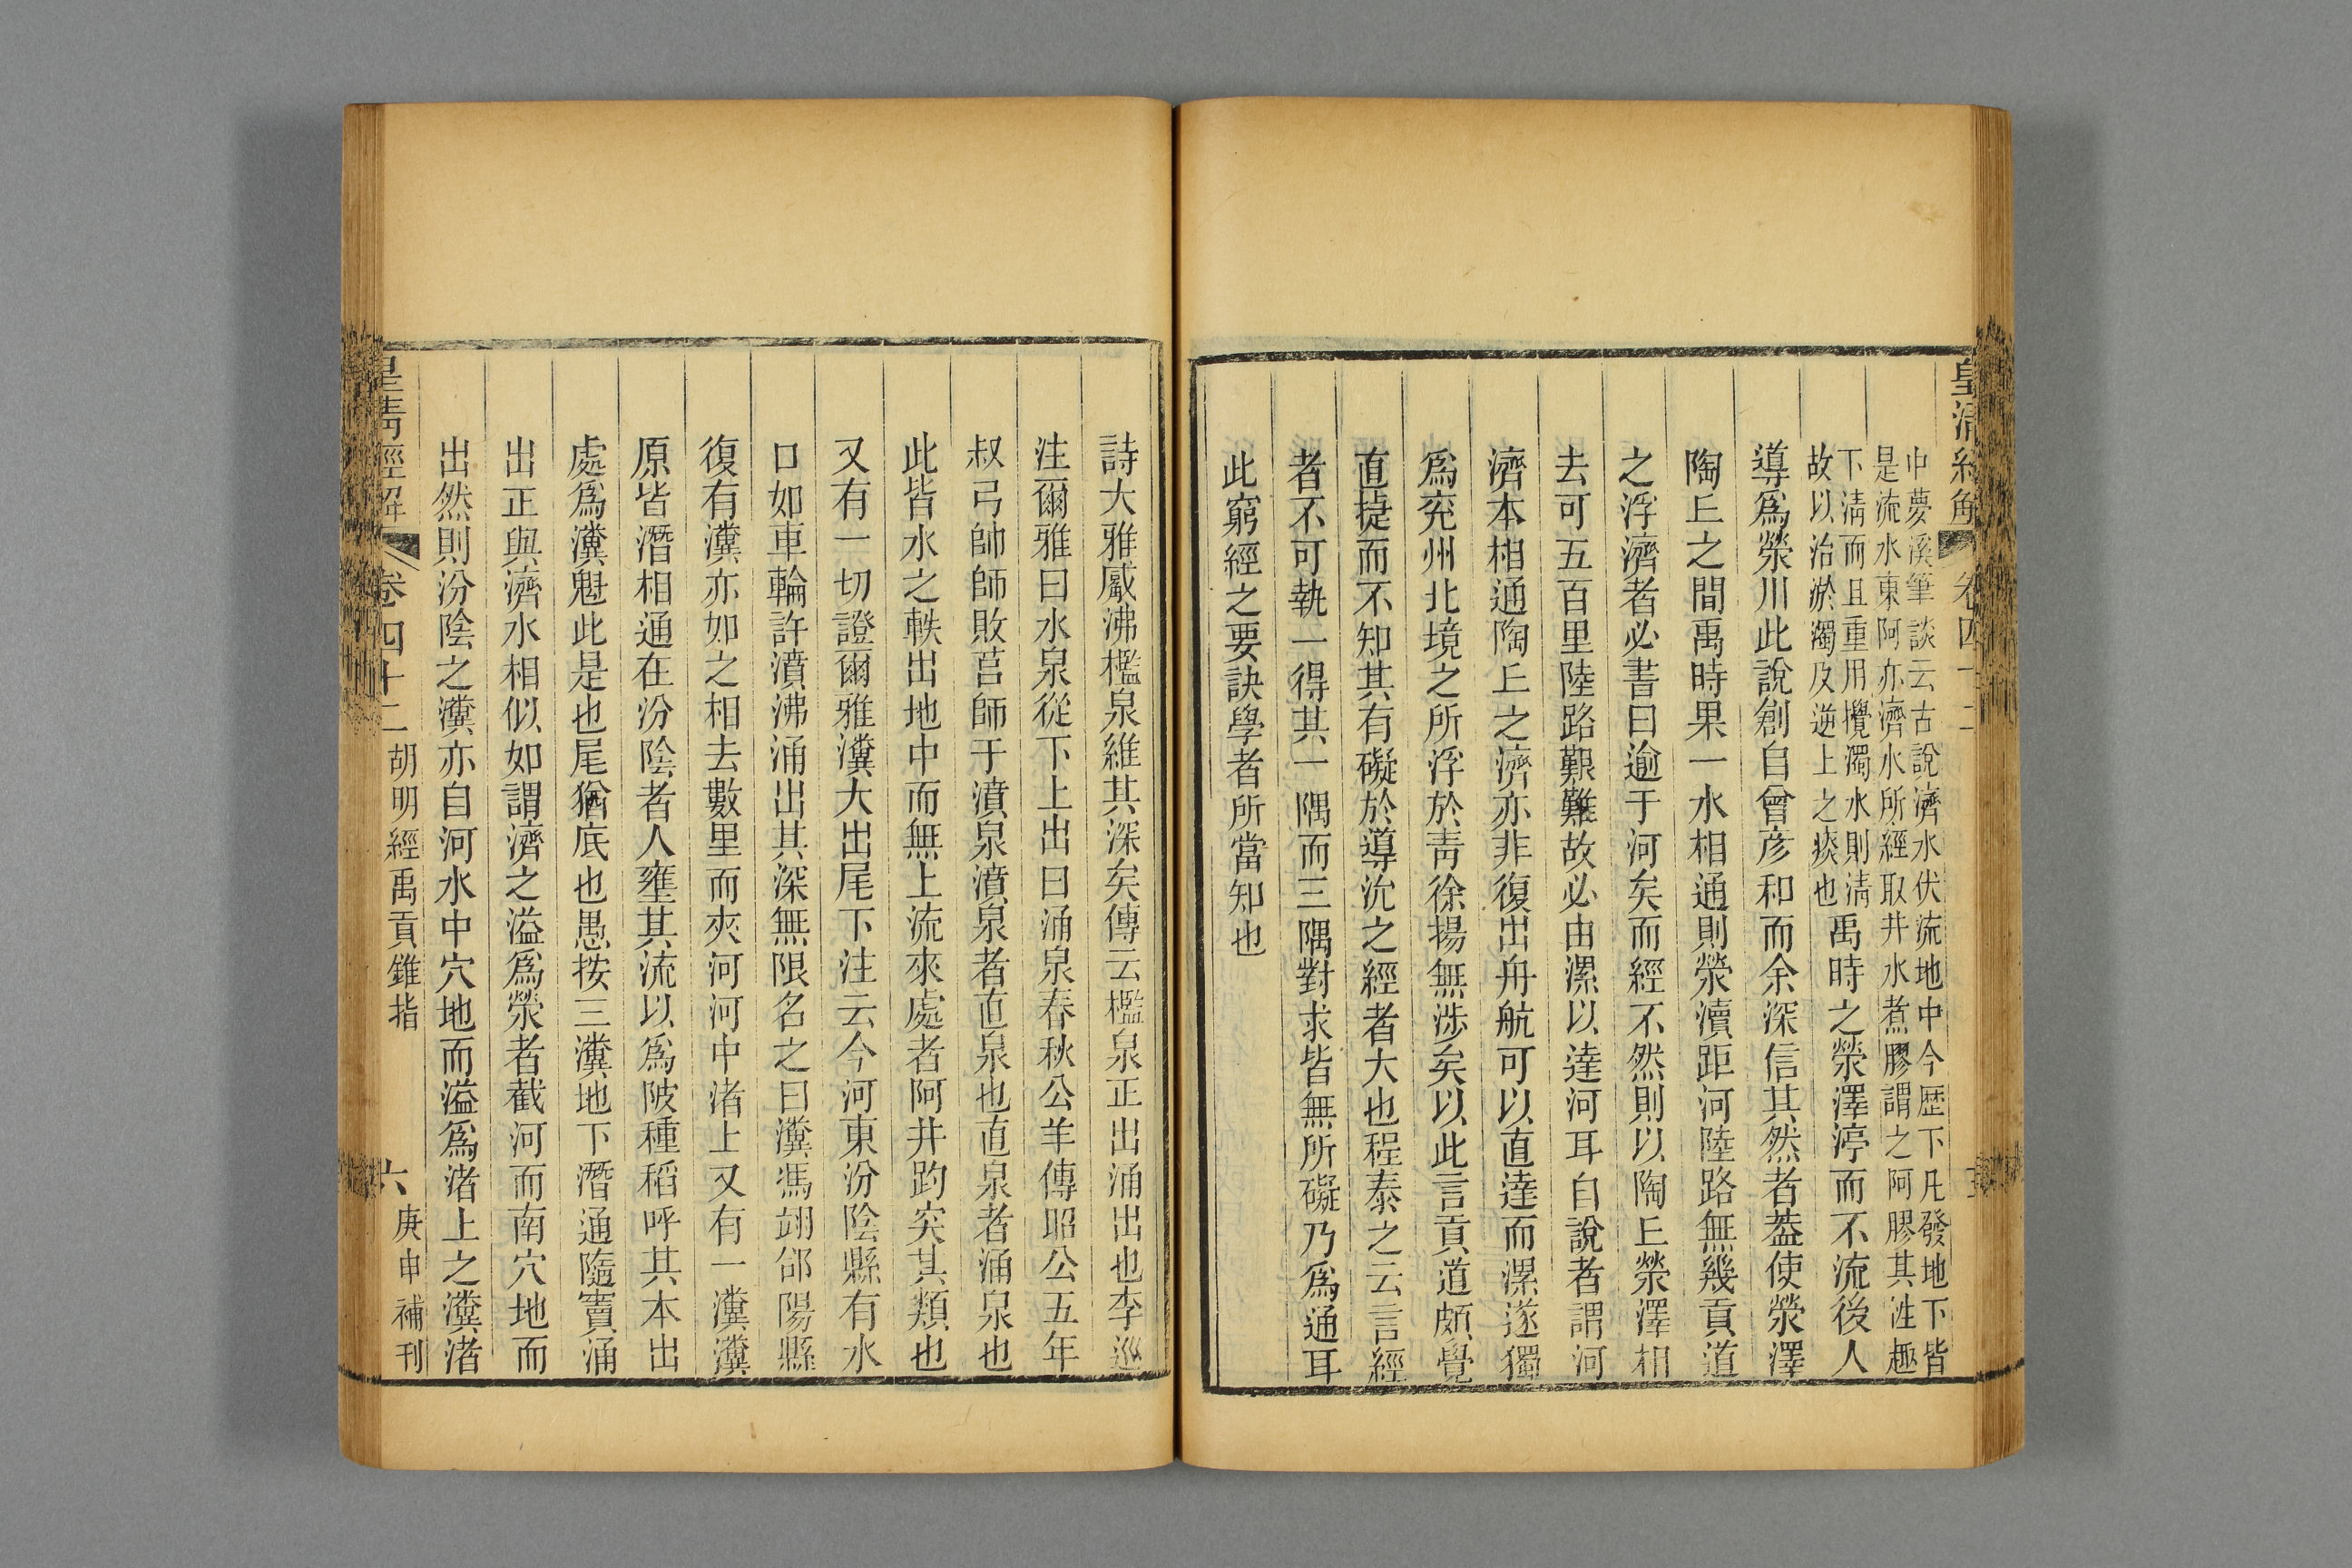 皇清經解 卷四十二
中夢溪筆談云古說濟水伏流地中今歷下凡發地下皆
是流水東阿亦濟水所經取井水煮膠謂之阿膠其性趣
下淸而且重用攪濁水則淸
故以治淤濁及逆上之痰也
禹時之滎澤渟而不流後人
導爲滎川此說創自曾彥和而余深信其然者葢使滎澤
陶丘之間禹時果一水相通則滎瀆距河陸路無幾貢道
之浮濟者必書曰逾于河矣而經不然則以陶丘滎澤相
去可五百里陸路艱難故必由漯以達河耳自說者謂河
濟本相通陶丘之濟亦非復出舟航可以直達而漯遂獨
爲兖州北境之所浮於靑徐揚無涉矣以此言貢道頗覺
直捷而不知其有礙於導沇之經者大也程泰之云言經
者不可執一得其一隅而三隅對求皆無所礙乃爲通耳
此窮經之要訣學者所當知也
詩大雅觱沸檻泉維其深矣傳云檻泉正出涌出也李巡
注爾雅曰水泉從下上出曰涌泉春秋公羊傳昭公五年
叔弓帥師敗莒師于濆泉濆泉者直泉也直泉者涌泉也
此皆水之軼出地中而無上流來處者阿井趵突其類也
又有一切證爾雅瀵大出尾下注云今河東汾陰縣有水
口如車輪許濆沸涌出其深無限名之曰瀵馮翊郃陽縣
復有瀵亦如之相去數里而夾河河中渚上又有一瀵瀵
原皆潛相通在汾陰者人壅其流以爲陂種稻呼其本出
處爲瀵魁此是也尾猶底也愚按三瀵地下潛通隨竇涌
出正與濟水相似如謂濟之溢爲滎者截河而南穴地而
出然則汾陰之瀵亦自河水中穴地而溢爲渚上之瀵渚
皇清經解 卷四十二 胡明經禹貢錐指 六 庚申補刊